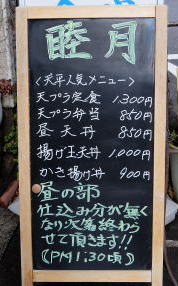 睦月
<天平人気メニュー>
天プラ定食 1300円
天プラ弁当 850円
昼天丼 850円
揚げ玉天丼 1,000円
かき揚げ丼 900円
昼の部
仕込み分が無く
なり次第終わら
せて頂きます!!
(PM1:30頃)